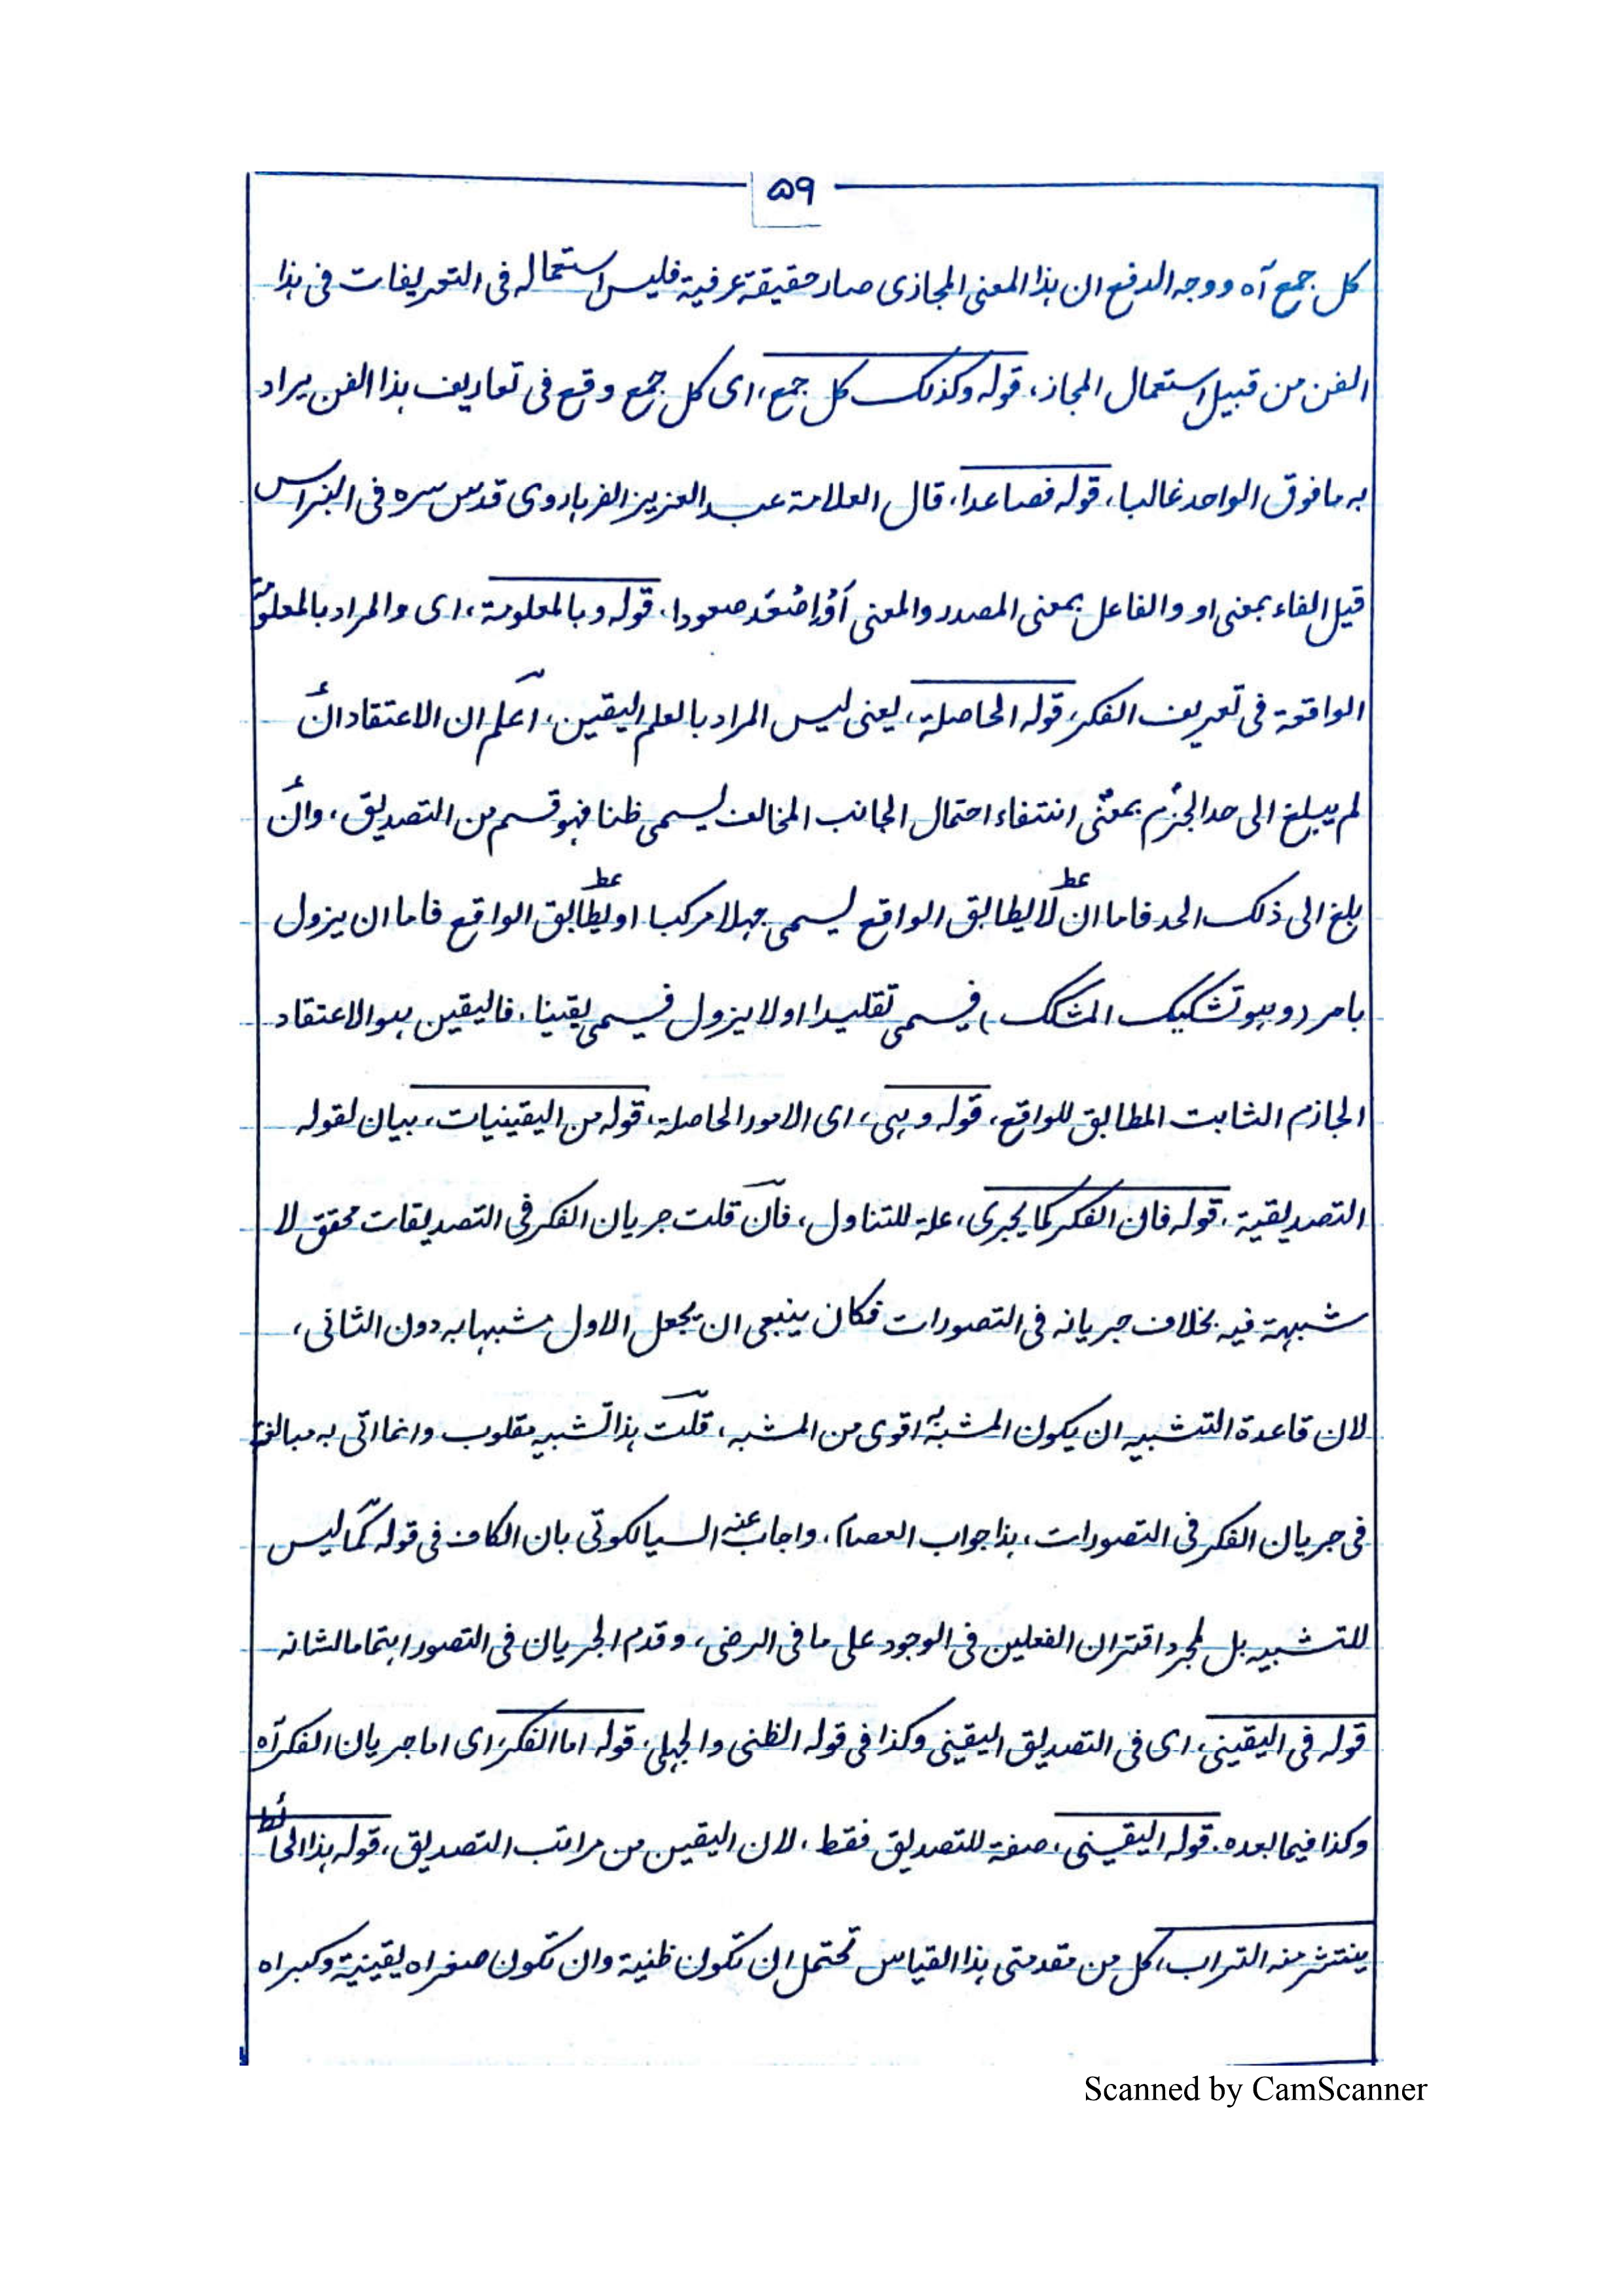 ۵۹
کل جمع آه ووجه الدفع ان ہذا المعنی المجازی صار حقیقة عرفیة فلیس استعماله فی التعریفات فی ہذا
الفن من قبیل استعمال المجاز، قوله وکذلک کل جمع، ای کل جمع وقع فی تعاریف ہذا الفن یراد
به ما فوق الواحد غالبا، قوله فصاعدا، قال العلامة عبد العزیز الفرہاروی قدس سره فی النبراس
قیل الفاء بمعنی او والفاعل بمعنی المصدر والمعنی أوْ اِصْعَد صعودا، قوله وبالمعلومة، ای والمراد بالمعلومة
الواقعة فی تعریف الفکر، قوله الحاصلة، یعنی لیس المراد بالعلم الیقین، اعلم ان الاعتقاد ان
لم یبلغ الی حد الجزم بمعنی انتفاء احتمال الجانب المخالف یسمی ظنا فہو قسم من التصدیق، وان
بلغ الی ذلک الحد فاما ان لا یطابق الواقع یسمی جہلا مرکبا او یطابق الواقع فاما ان یزول
بامر (وہو تشکیک المشکک) فیسمی تقلیدا او لا یزول فیسمی یقینا، فالیقین ہو الاعتقاد
الجازم الثابت المطابق للواقع، قوله وہی، ای الامور الحاصلة، قوله من الیقینیات، بیان لقوله
التصدیقیة، قوله فان الفکر کما یجری، علة للتناول، فان قلت جریان الفکر فی التصدیقات محقق لا
شبہة فیه بخلاف جریانه فی التصورات فکان ینبعی ان یجعل الاول مشبہا به دون الثانی،
لان قاعدة التشبیه ان یکون المشبه به اقوی من المشبه، قلت ہذا تشبیه مقلوب وانما اتی به مبالغة
فی جریان الفکر فی التصورات، ہذا جواب العصام، واجاب عنه السیالکوتی بان الکاف فی قوله کما لیس
للتشبیه بل لمجرد اقتران الفعلین فی الوجود علی ما فی الرضی، وقدم الجریان فی التصور اہتماما لشانه
قوله فی الیقینی، ای فی التصدیق الیقینی وکذا فی قوله الظنی والجہلی، قوله اما الفکر، ای اما جریان الفکر آه
وکذا فیما بعده. قوله الیقینی، صفة للتصدیق فقط، لان الیقین من مراتب التصدیق، قوله ہذا الحائط
ینتشر منه التراب، کل من مقدمتی ہذا القیاس تحتمل ان تکون ظنیة وان تکون صغراه یقینیة وکبراه
Scanned by CamScanner